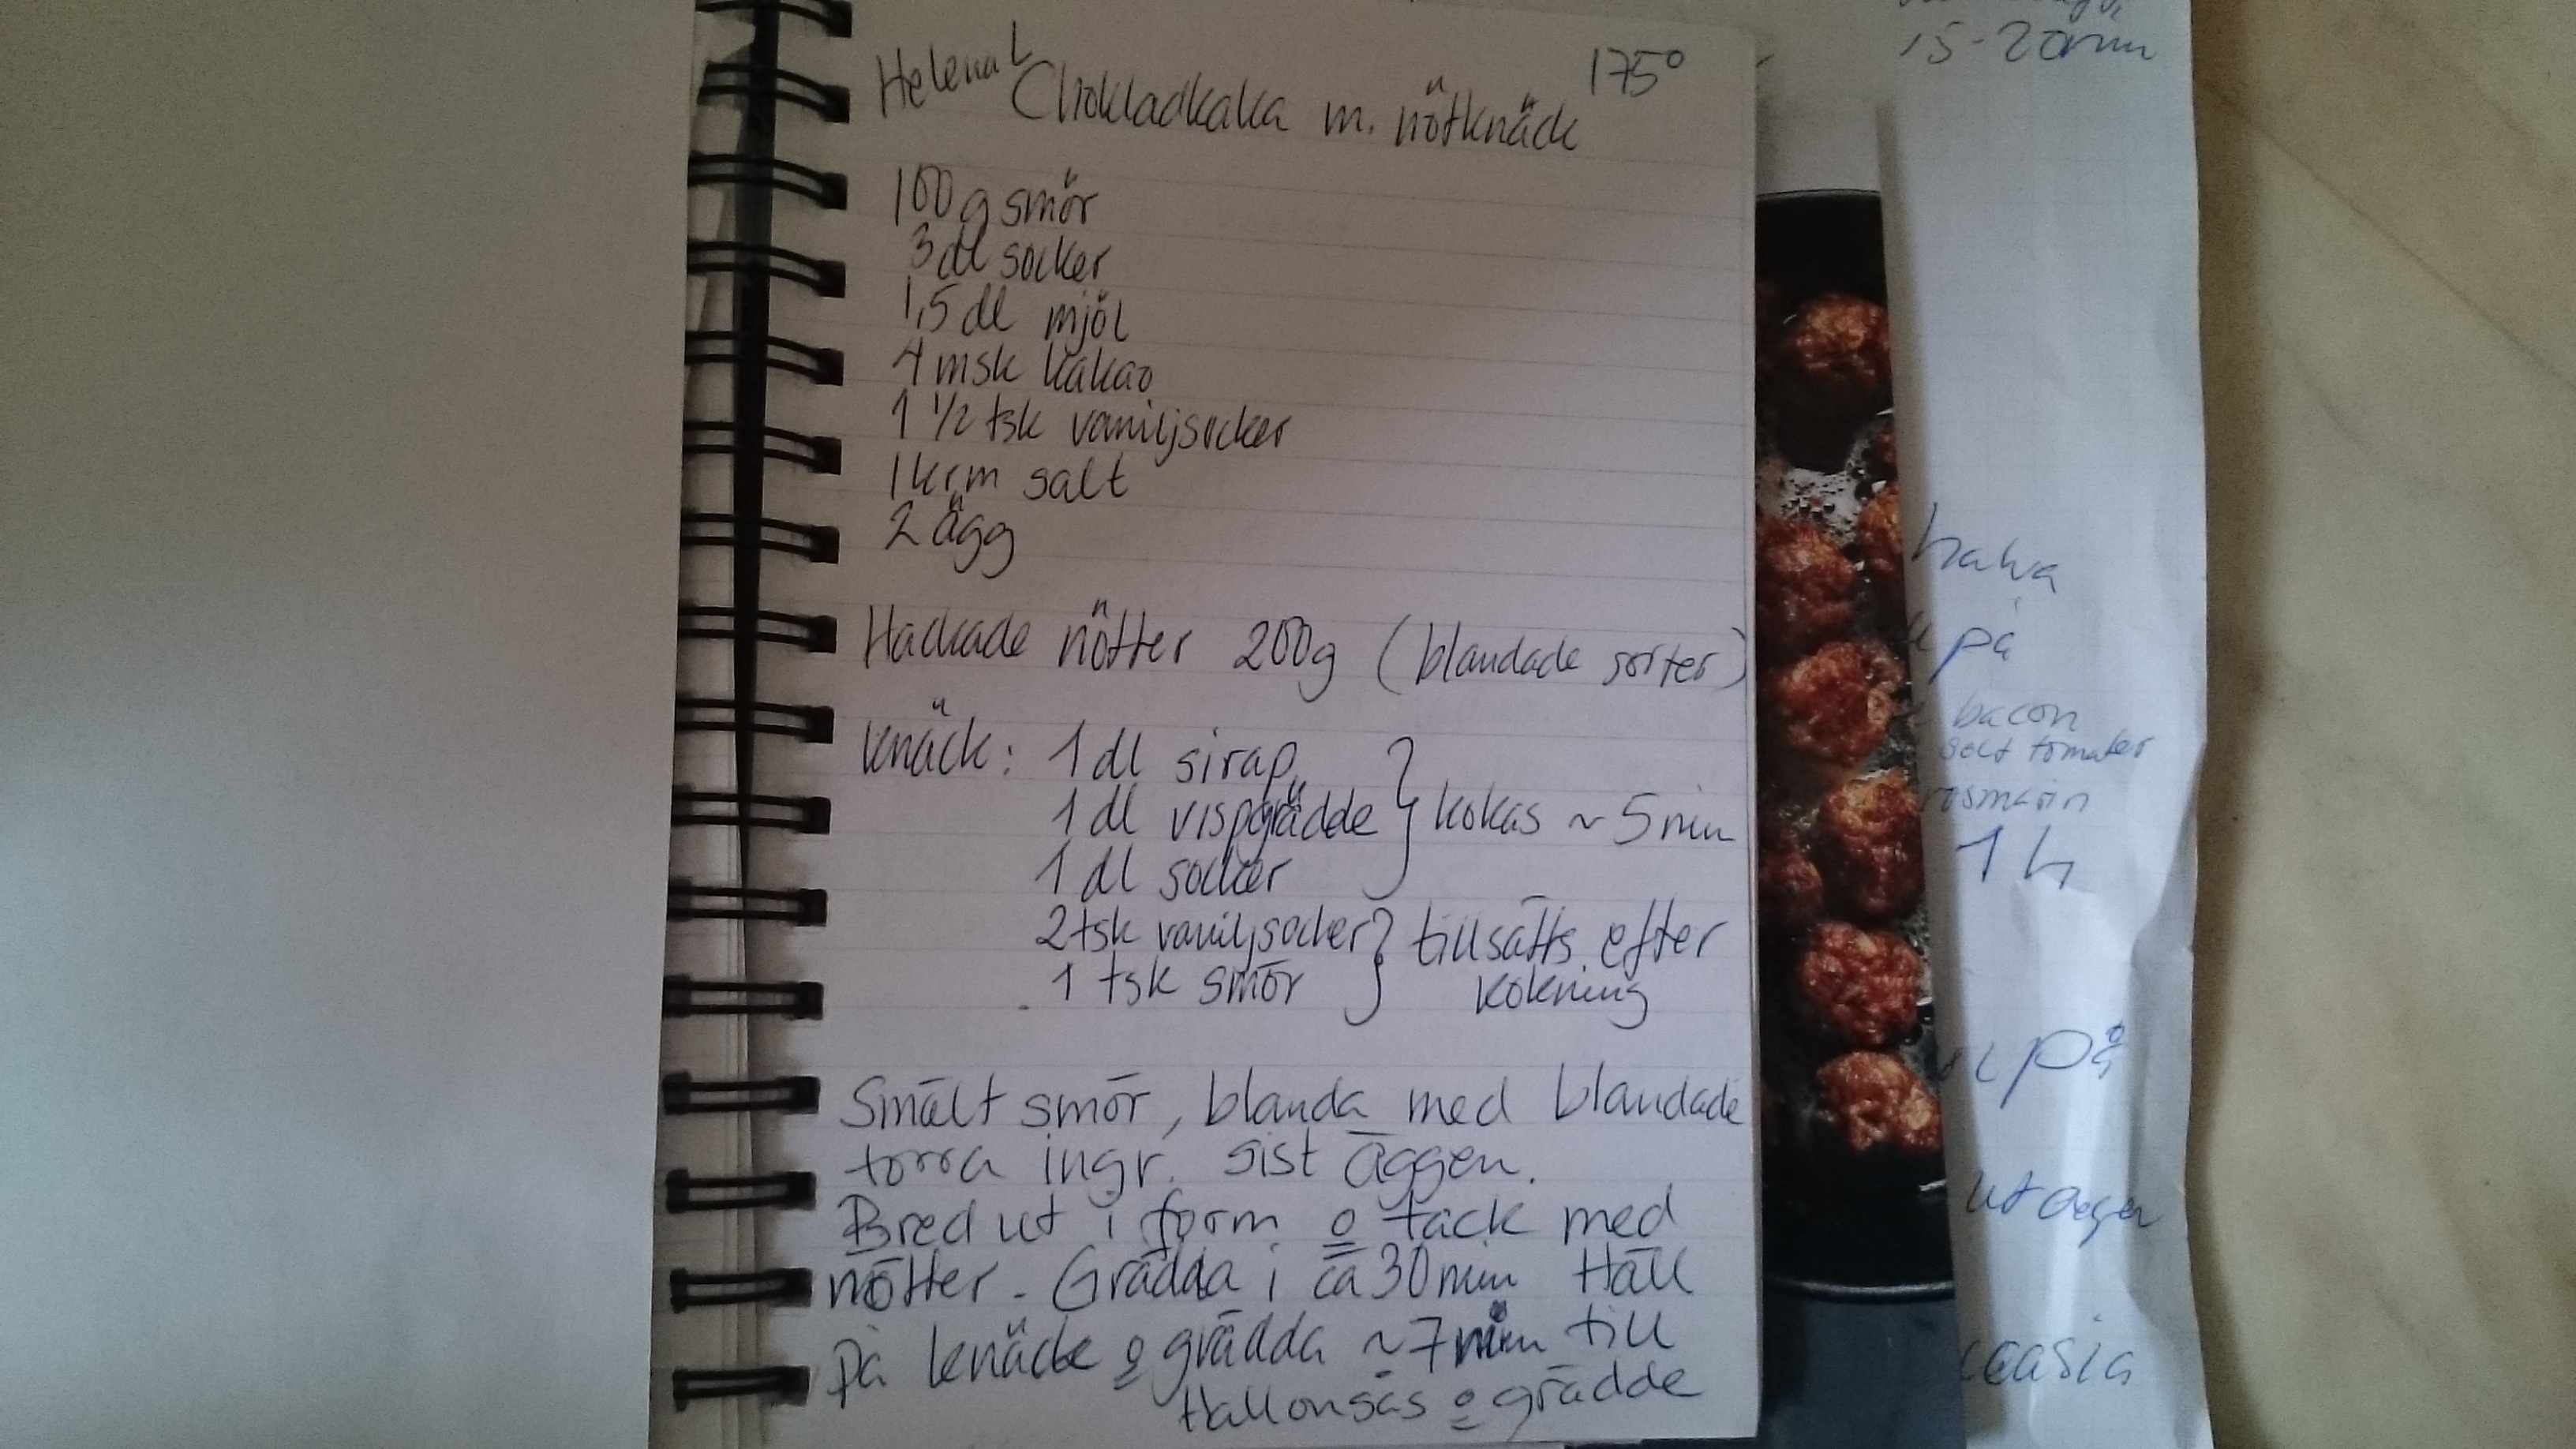 Helena L
Chokladkaka m. nötknäck 175°
100 g smör
3 dl socker
1,5 dl mjöl
4 msk kakao
1 1/2 tsk vaniljsocker
1 krm salt
2 ägg
Hackade nötter 200g (blandade sorter)
Knäck: 1 dl sirap
1 dl vispgrädde } kokas ~ 5 min
1 dl socker
2 tsk vaniljsocker } tillsätts efter
1 tsk smör kokning
Smält smör, blanda med blandade
torra ingr. sist äggen.
Bred ut i form o täck med
nötter. Grädda i ca 30 min Häll
på knäck o grädda ~ 7 min till
Hallonsås o grädde
15-20 min
halva
på
bacon
solt tomater
rosmarin
1 h
på
ut degen